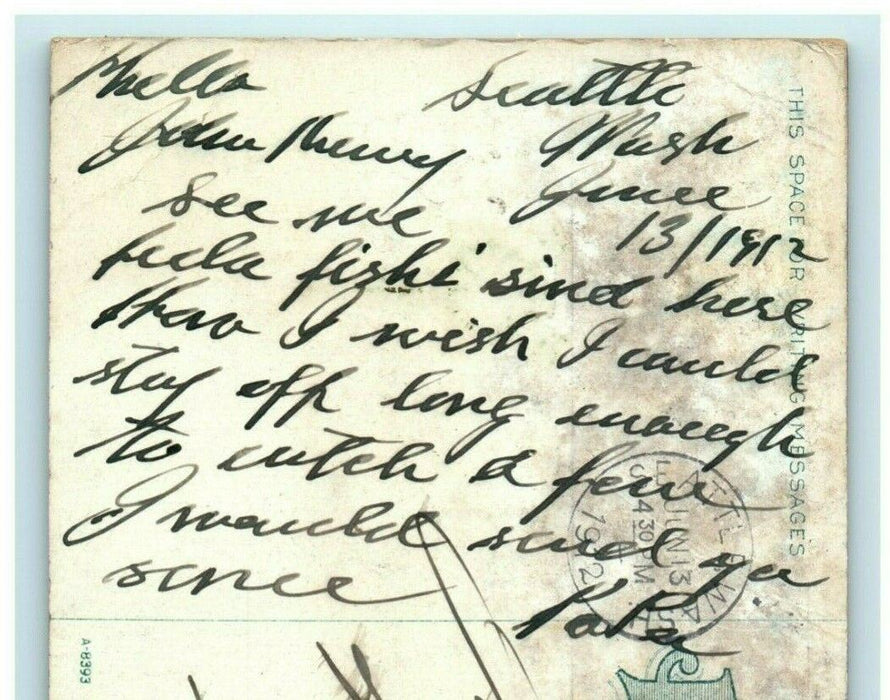 Hello Seattle
John Henry Wash
See me June
13/1912
fishi sind here
thro I wish I could
stay off long enough
to catch a few
I would send you
some
PaPa
THIS SPACE FOR WRITING MESSAGES
SEATTLE, WASH.
JUN 13
4 30 PM
1912
A-8393